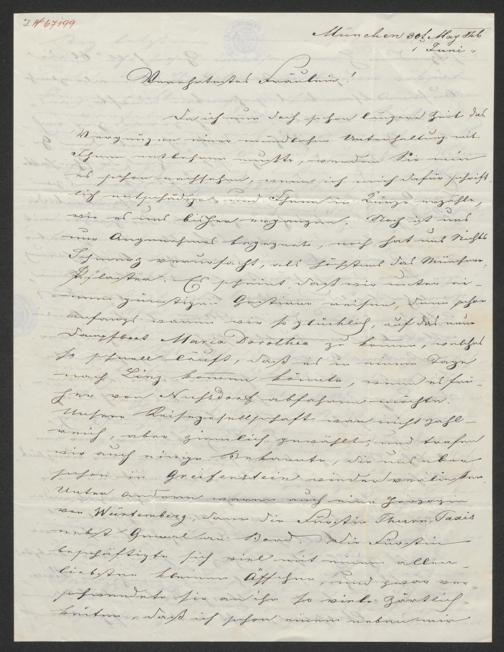 I N 67199
München 30t May 846
1 Juni
Verehrtestes Fräulein!
Da ich nun doch schon längere Zeit das
Vergnügen einer mündlichen Unterhaltung mit
Ihnen entbehren mußte, werden Sie mir
es schon nachsehen, wenn ich mich dafür schrift
lich entschädige, und Ihnen in Kürze erzähle,
wie es uns bisher ergangen. Noch ist uns
nur Angenehmes begegnet, noch hat uns Nichts
Schmerz verursacht, als höchstens das Münchner
Pflaster. Es scheint daß wir unter ei-
nem günstigen Gestirne reisen, denn schon
anfangs waren wir so glücklich, auf das neue
Dampfboot Maria Dorothea zu kommen, welches
so schnell läuft, daß es in einem Tage
nach Linz kommen könnte, wenn es frü-
her von Nußdorf abfahren möchte.
Unsere Reisegesellschaft war nicht zahl-
reich, aber ziemlich gewählt, und trafen
wir auch einige Bekannte, die uns aber
schon in Greifenstein wieder verließen
Unter andern waren auch eine Herzogin
von Würtemberg, dann die Fürstin Thurn Taxis
nebst Gemal am Bord. Die Fürstin
beschäftigte sich viel mit einem aller-
liebsten kleinen Äffchen, und zwar ver
schwendete sie an ihn so viele Zärtlich-
keiten, daß ich schon einen neben mir